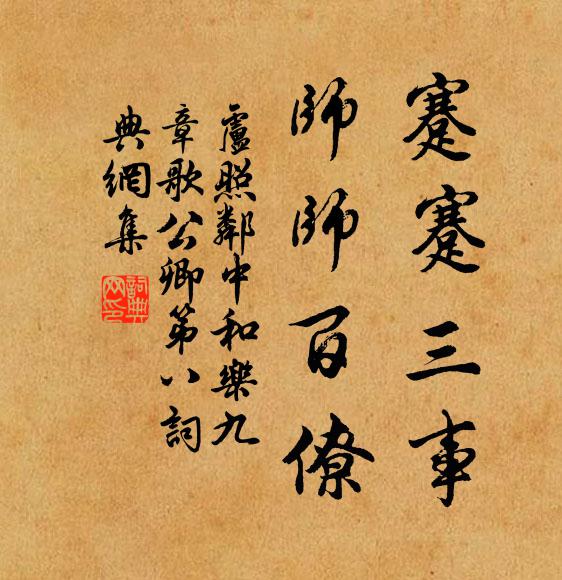 蹇蹇三事
師師百僚
盧照鄰中和樂九
章歌公卿第八詞
典網集
詞典
网印